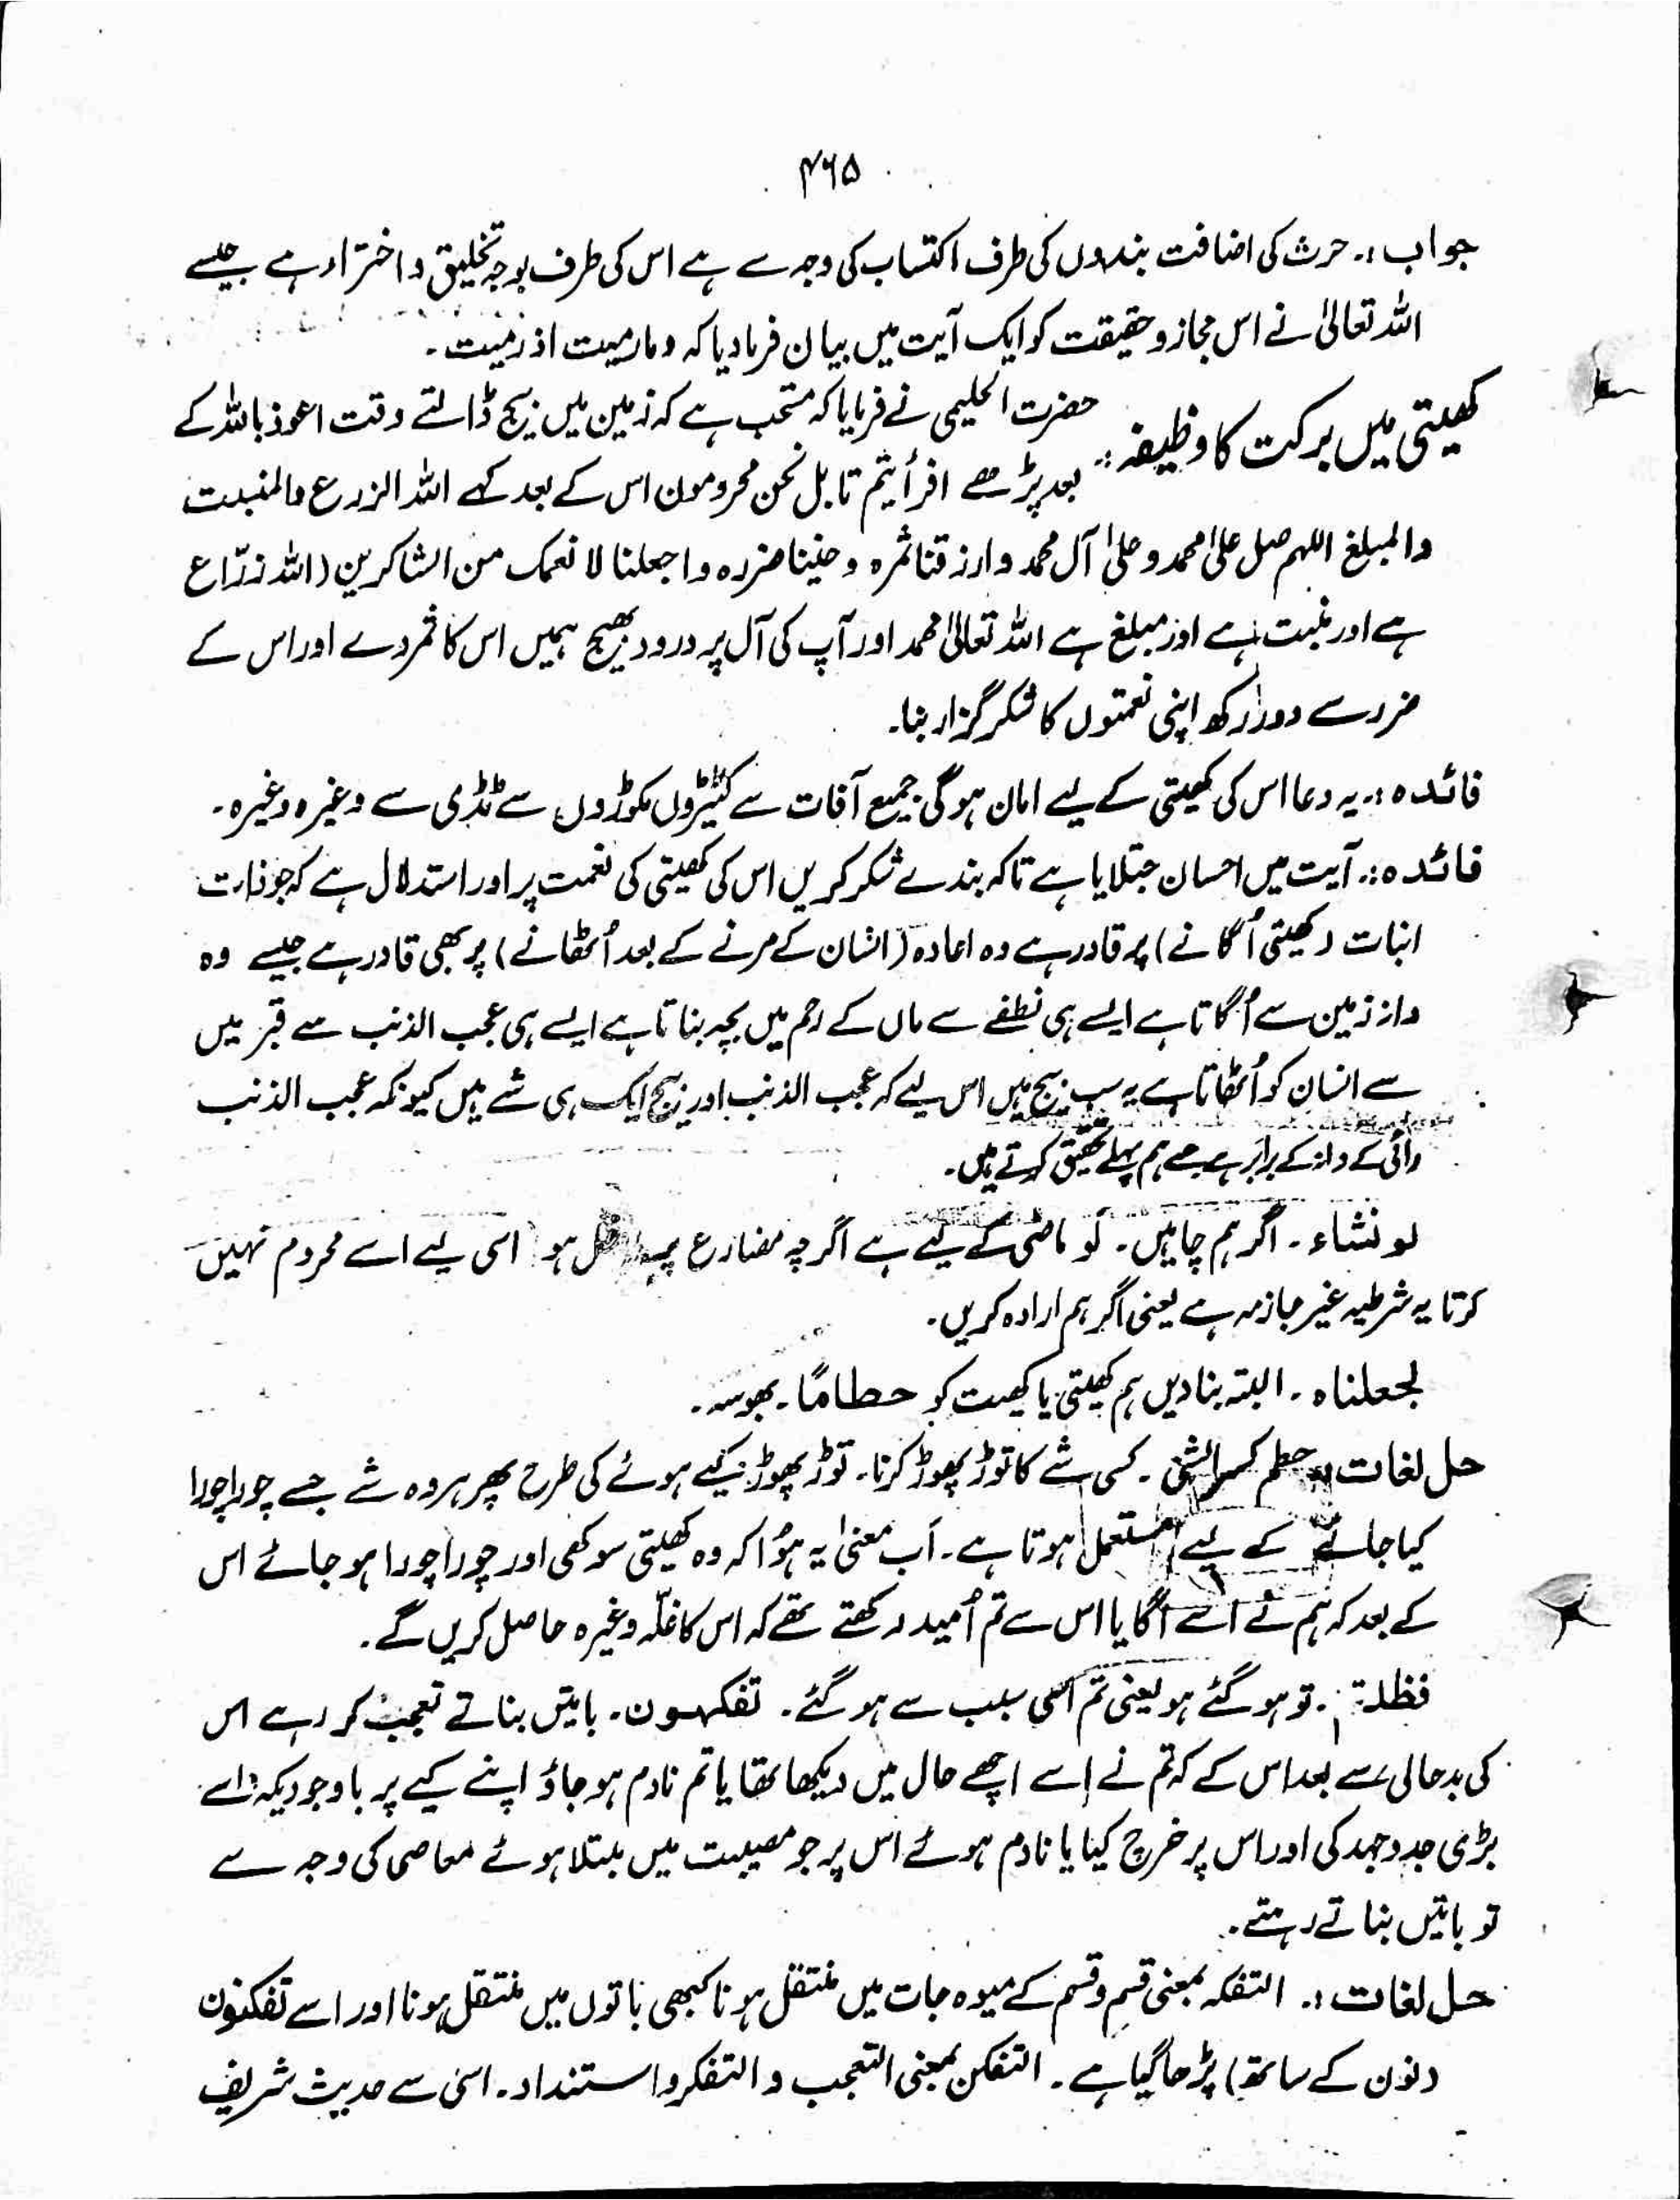 ۴۶۵
جواب :۔ حرث کی اضافت بندوں کی طرف اکتساب کی وجہ سے ہے اس کی طرف بوجہ تخلیق و اختراء ہے جیسے
اللہ تعالیٰ نے اس مجاز و حقیقت کو ایک آیت میں بیان فرما دیا کہ وما رمیت اذ رمیت۔
کھیتی میں برکت کا وظیفہ :۔ حضرت الحلیمی نے فرمایا کہ مستحب ہے کہ زمین میں بیج ڈالتے وقت اعوذ باللہ کے
بعد پڑھے افرأیتم تا بل نحن محرومون اس کے بعد کہے اللہ الزرع والمنبت
والمبلغ اللہم صل علیٰ محمد و علیٰ آل محمد وارزقنا ثمرہ و جنبنا ضررہ واجعلنا لانعمک من الشاکرین (اللہ زرّاع
ہے اور منبت ہے اور مبلغ ہے اللہ تعالیٰ محمد اور آپ کی آل پر درود بھیج ہمیں اس کا ثمر دے اور اس کے
ضرر سے دور رکھ اپنی نعمتوں کا شکر گزار بنا۔
فائدہ :۔ یہ دعا اس کی کھیتی کے لیے امان ہوگی جمیع آفات سے کیڑوں مکوڑوں سے ٹڈی سے وغیرہ وغیرہ۔
فائدہ :۔ آیت میں احسان جتلایا ہے تاکہ بندے شکر کریں اس کی کھیتی کی نعمت پر اور استدلال ہے کہ جو ذات
انبات (کھیتی اُگانے) پر قادر ہے وہ اعادہ (انسان کے مرنے کے بعد اُٹھانے) پر بھی قادر ہے جیسے وہ
دانہ زمین سے اُگاتا ہے ایسے ہی نطفے سے ماں کے رحم میں بچہ بناتا ہے ایسے ہی عجب الذنب سے قبر میں
سے انسان کو اُٹھاتا ہے یہ سب بیج ہیں اس لیے کہ عجب الذنب اور بیج ایک ہی شے ہیں کیونکہ عجب الذنب
رائی کے دانہ کے برابر ہے جسے ہم پہلے تحقیق کرتے ہیں۔
لو نشاء۔ اگر ہم چاہیں۔ لو ماضی کے لیے ہے اگرچہ مضارع پر داخل ہو اسی لیے اسے محروم نہیں
کرتا یہ شرطیہ غیر جازمہ ہے یعنی اگر ہم ارادہ کریں۔
لجعلناہ۔ البتہ بنا دیں ہم کھیتی یا کھیت کو حطامًا۔ بھوسہ۔
حل لغات :۔ حطم کسر الشئی۔ کسی شے کا توڑ پھوڑ کرنا۔ توڑ پھوڑ کیے ہوئے کی طرح پھر ہر وہ شے جسے چورا چورا
کیا جائے کے لیے مستعمل ہوتا ہے۔ اب معنیٰ یہ ہؤا کہ وہ کھیتی سوکھی اور چورا چورا ہو جائے اس
کے بعد کہ ہم نے اسے اُگایا اس سے تم اُمید رکھتے تھے کہ اس کا غلّہ وغیرہ حاصل کریں گے۔
فظلتم۔ تو ہو گئے ہو یعنی تم اسی سبب سے ہو گئے۔ تفکہون۔ باتیں بناتے تعجب کر رہے اس
کی بدحالی سے بعد اس کے کہ تم نے اسے اچھے حال میں دیکھا تھا یا تم نادم ہو جاؤ اپنے کیے پر باوجودیکہ اسے
بڑی جدوجہد کی اور اس پر خرچ کیا یا نادم ہوئے اس پر جو مصیبت میں مبتلا ہوئے معاصی کی وجہ سے
تو باتیں بناتے رہتے۔
حل لغات :۔ التفکہ بمعنی قسم و قسم کے میوہ جات میں منتقل ہونا کبھی باتوں میں منتقل ہونا اور اسے تفکنون
(نون کے ساتھ) پڑھا گیا ہے۔ التفکن بمعنی التعجب و التفکر و استنداد۔ اسی سے حدیث شریف